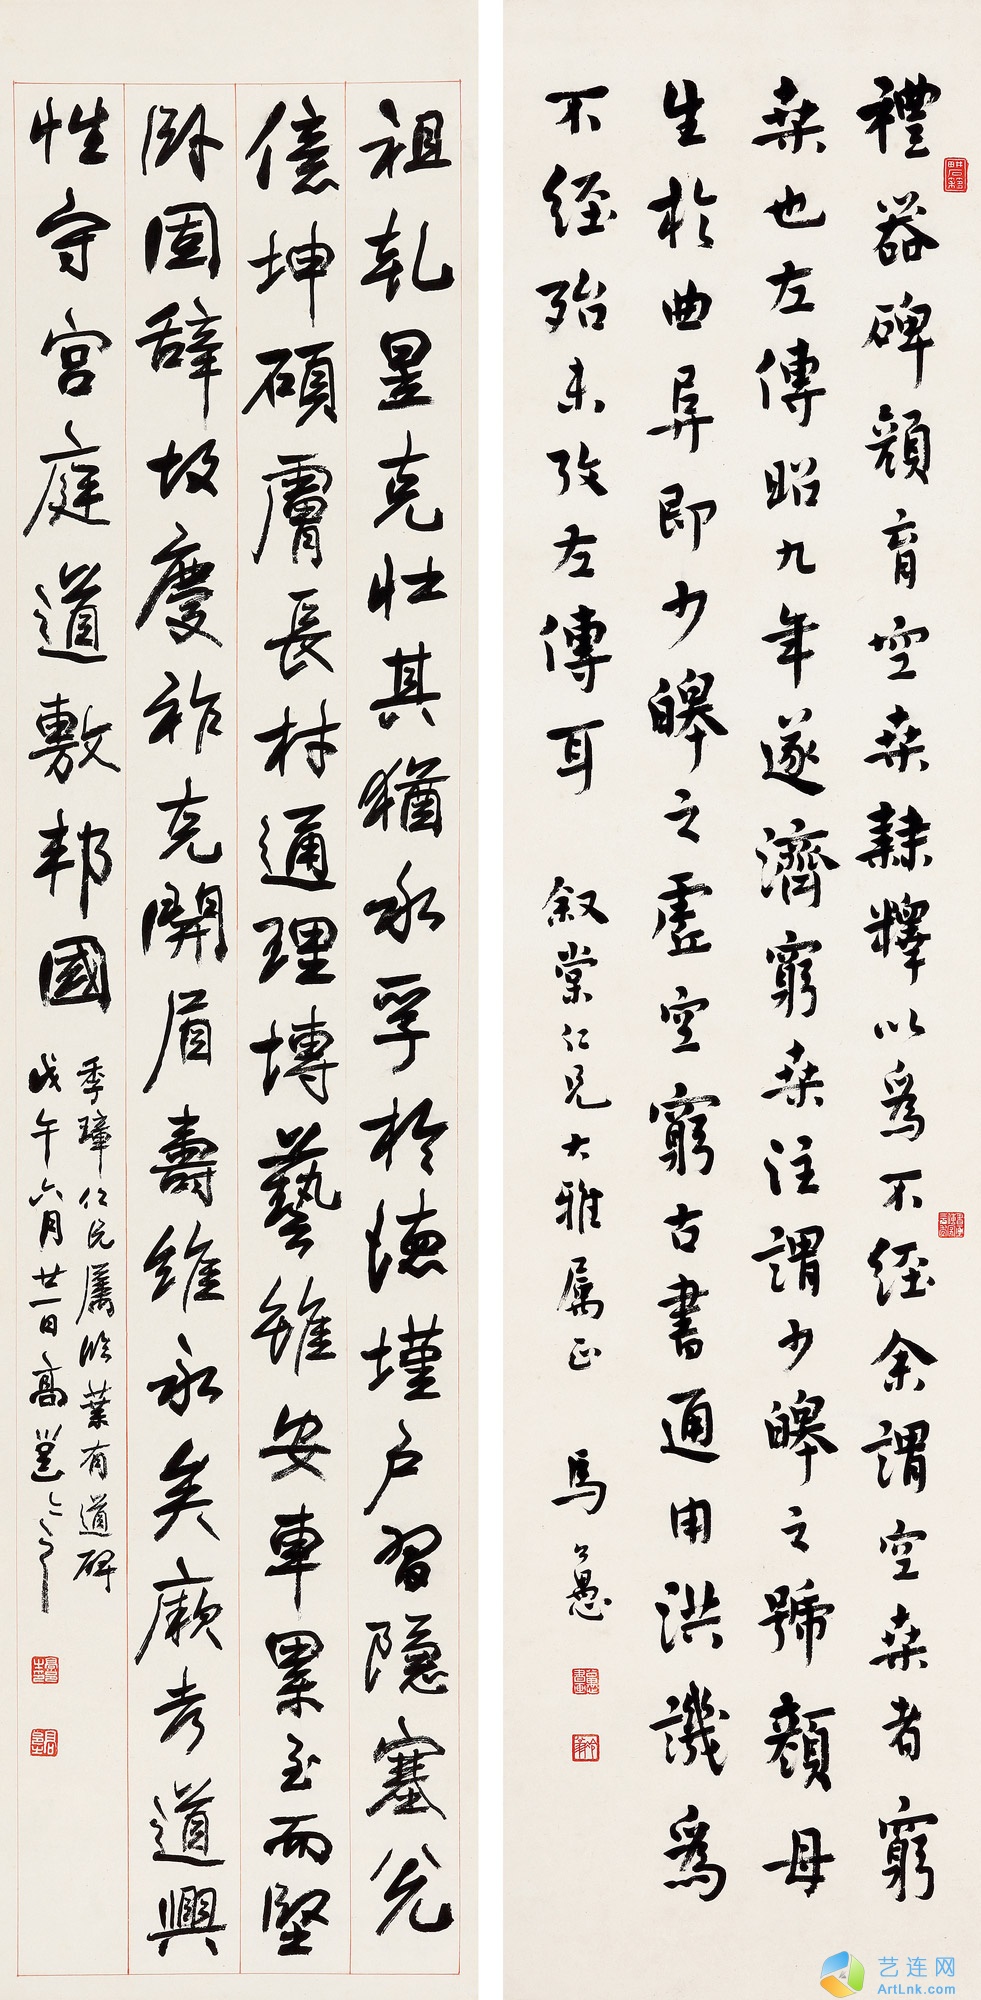 禮器碑顏育空桑隸釋以爲不經余謂空桑者窮
桑也左傳昭九年遂濟窮桑注謂少皞之號顏母
生於曲阜即少皞之虛空窮古書通用洪譏爲
不經殆未攷左傳耳 叙棠仁兄大雅属正 馬公愚
祖乾昱克壯其猶永孚於德墐戶習隱塞兌
億坤碩膚長材通理博藝雖安車累至而堅
卧固辭故慶祚克開眉壽維永矣厥考道興
性守宮庭道敷邦國
季璋仁兄屬臨葉有道碑
戊午六月廿一日高邕之
艺连网
ArtLnk.com